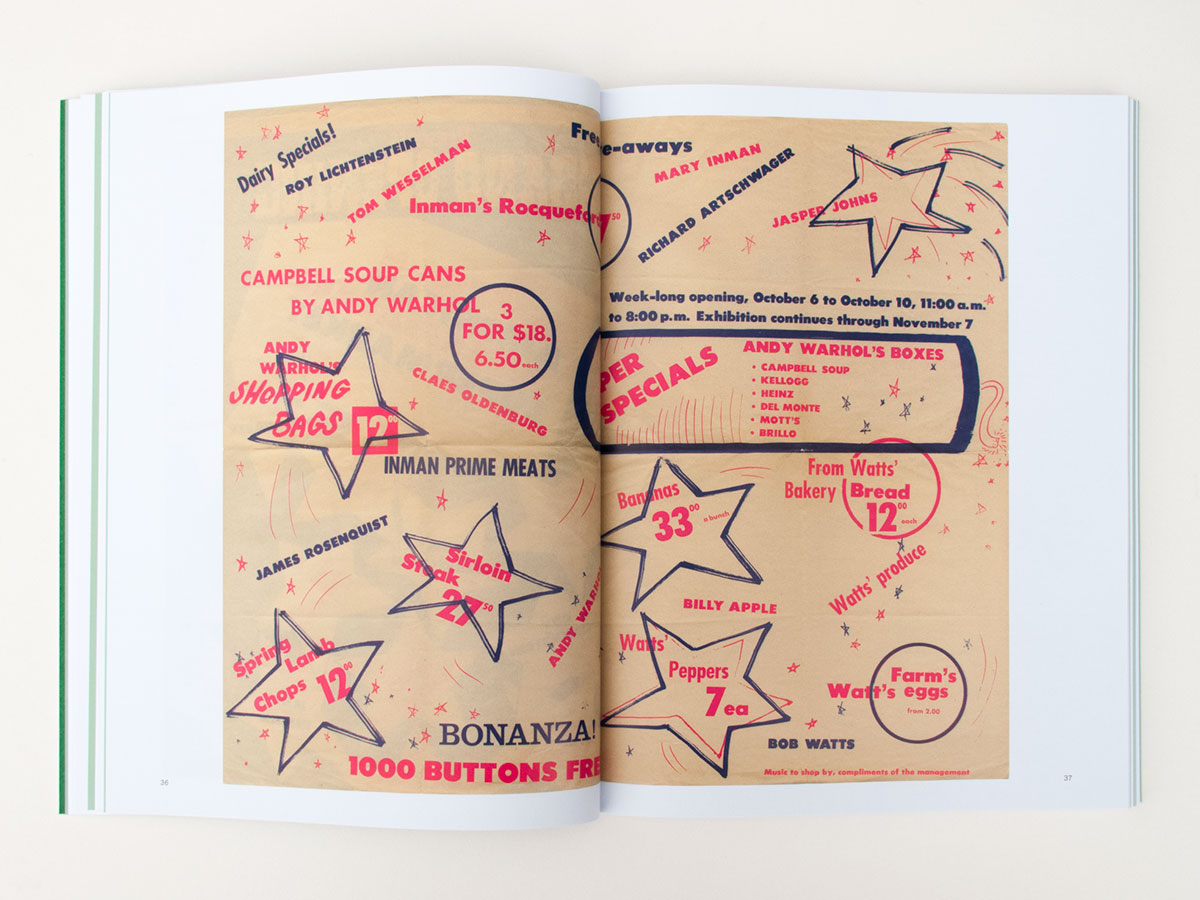 Dairy Specials!
ROY LICHTENSTEIN
TOM WESSELMAN
Inman's Rocquefor
CAMPBELL SOUP CANS
BY ANDY WARHOL
3
FOR $18.
6.50 each
ANDY
WARHOL'S
SHOPPING
BAGS 12⁰⁰
CLAES OLDENBURG
INMAN PRIME MEATS
JAMES ROSENQUIST
Sirloin
Steak
27⁵⁰
ANDY WARHO
Spring
Lamb
Chops 12⁰⁰
BONANZA!
1000 BUTTONS FRE
36
Free
e-aways
MARY INMAN
RICHARD ARTSCHWAGER
JASPER JOHNS
7⁵⁰
Week-long opening, October 6 to October 10, 11:00 a.m.
to 8:00 p.m. Exhibition continues through November 7
PER
SPECIALS
ANDY WARHOL'S BOXES
• CAMPBELL SOUP
• KELLOGG
• HEINZ
• DEL MONTE
• MOTT'S
• BRILLO
Bananas
33⁰⁰ a bunch
From Watts'
Bakery Bread
12⁰⁰ each
Watts' produce
BILLY APPLE
Watts'
Peppers
7 ea
Farm's
Watt's eggs
from 2.00
BOB WATTS
Music to shop by, compliments of the management
37